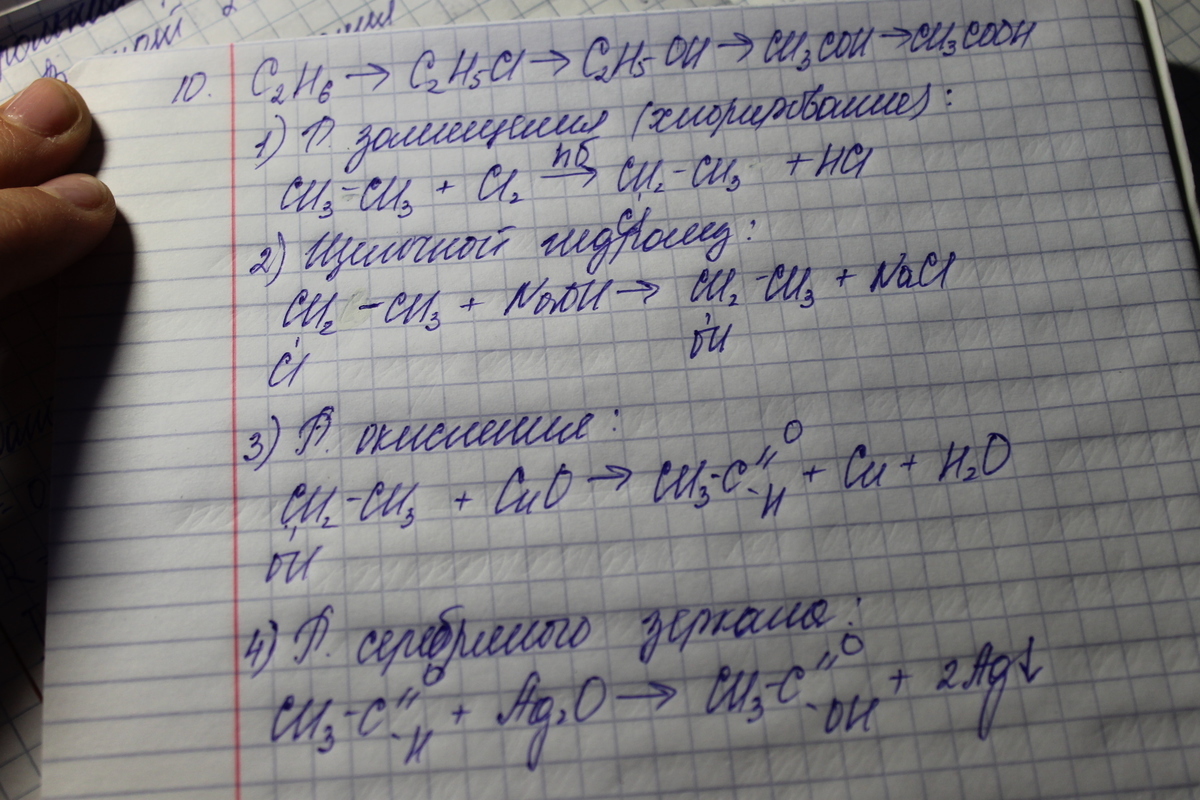 10. C₂H₆ → C₂H₅Cl → C₂H₅OH → CH₃COH → CH₃COOH
1) Р. замещения (хлорирование):
hδ
CH₃-CH₃ + Cl₂ → CH₂-CH₃ + HCl
Cl
2) Щелочной гидролиз:
CH₂-CH₃ + NaOH → CH₂-CH₃ + NaCl
Cl OH
3) Р. окисления:
O
CH₂-CH₃ + CuO → CH₃-C -H + Cu + H₂O
OH
4) Р. серебряного зеркала:
O O
CH₃-C -H + Ag₂O → CH₃-C -OH + 2Ag↓